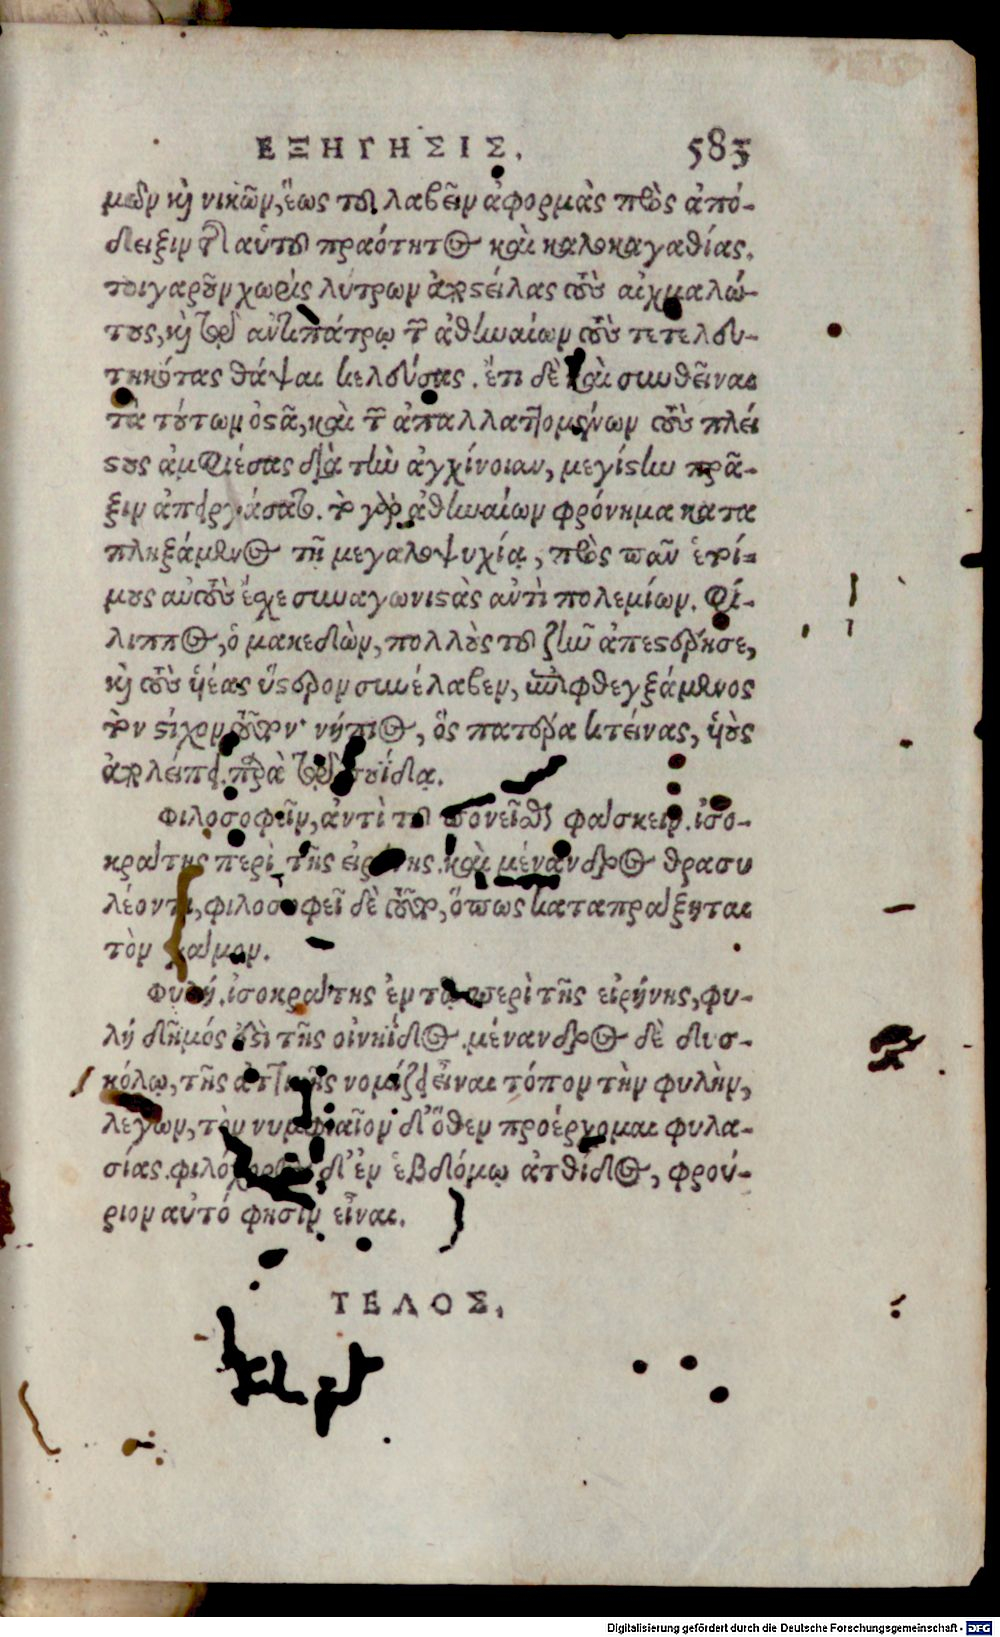 ΕΞΗΓΗΣΙΣ. 583
μεν καὶ νικῶν, ἕως τοῦ λαβεῖν ἀφορμὰς πρὸς ἀπό-
δειξιν τῆς αὑτοῦ πραότητος καὶ καλοκαγαθίας.
τοιγαροῦν χωρὶς λύτρων ἀποστείλας τοὺς αἰχμαλώ-
τους, καὶ τῷ ἀντιπάτρῳ τῶν ἀθηναίων τοὺς τετελευ-
τηκότας θάψαι κελεύσας. ἔτι δὲ καὶ συνθεῖναι
τὰ τούτων ὀστᾶ, καὶ τῶν ἀπαλλαττομένων τοὺς πλεί
στους ἀμφιέσας διὰ τὴν ἀγχίνοιαν, μεγίστην πρᾶ-
ξιν ἀπειργάσατο. τὸ γὰρ ἀθηναίων φρόνημα κατα
πληξάμενος τῇ μεγαλοψυχίᾳ, πρὸς πᾶν ἑτοί-
μους αὐτοὺς ἔσχε συναγωνιστὰς ἀντὶ πολεμίων. Φί-
λιππος, ὁ μακεδὼν, πολλοὺς τοῦ ζῆν ἀπεστέρησε,
καὶ τοὺς υἱέας ὕστερον συνέλαβεν, ἐπιφθεγξάμενος
τὸν στίχον τοῦτον· νήπιος, ὃς πατέρα κτείνας, υἱοὺς
ἀπολείπει. παρὰ τῷ σουίδᾳ.
Φιλοσοφεῖν, ἀντὶ τοῦ πονεῖσθαι φάσκειν. ἰσο-
κράτης περὶ τῆς εἰρήνης. καὶ μένανδρος θρασυ
λέοντι, φιλοσοφεῖ δὲ τοῦτο, ὅπως καταπράξηται
τὸν γάμον.
Φυλή. ἰσοκράτης ἐν τῷ περὶ τῆς εἰρήνης, φυ-
λή δῆμός ἐστι τῆς οἰνηίδος. μένανδρος δὲ δυσ-
κόλῳ, τῆς ἀττικῆς νομίζει εἶναι τόπον τὴν φυλὴν,
λέγων, τὸν νυμφαῖον δ' ὅθεν προέρχομαι φυλα-
σίας. φιλόχορος δ' ἐν ἑβδόμῳ ἀτθίδος, φρού-
ριον αὐτό φησιν εἶναι.
ΤΕΛΟΣ.
Digitalisierung gefördert durch die Deutsche Forschungsgemeinschaft - DFG